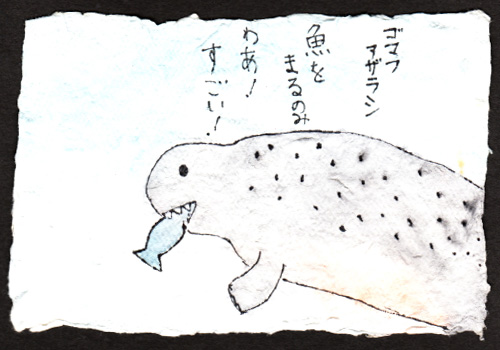 ゴマフ
アザラシ
魚を
まるのみ
わあ!
すごい!